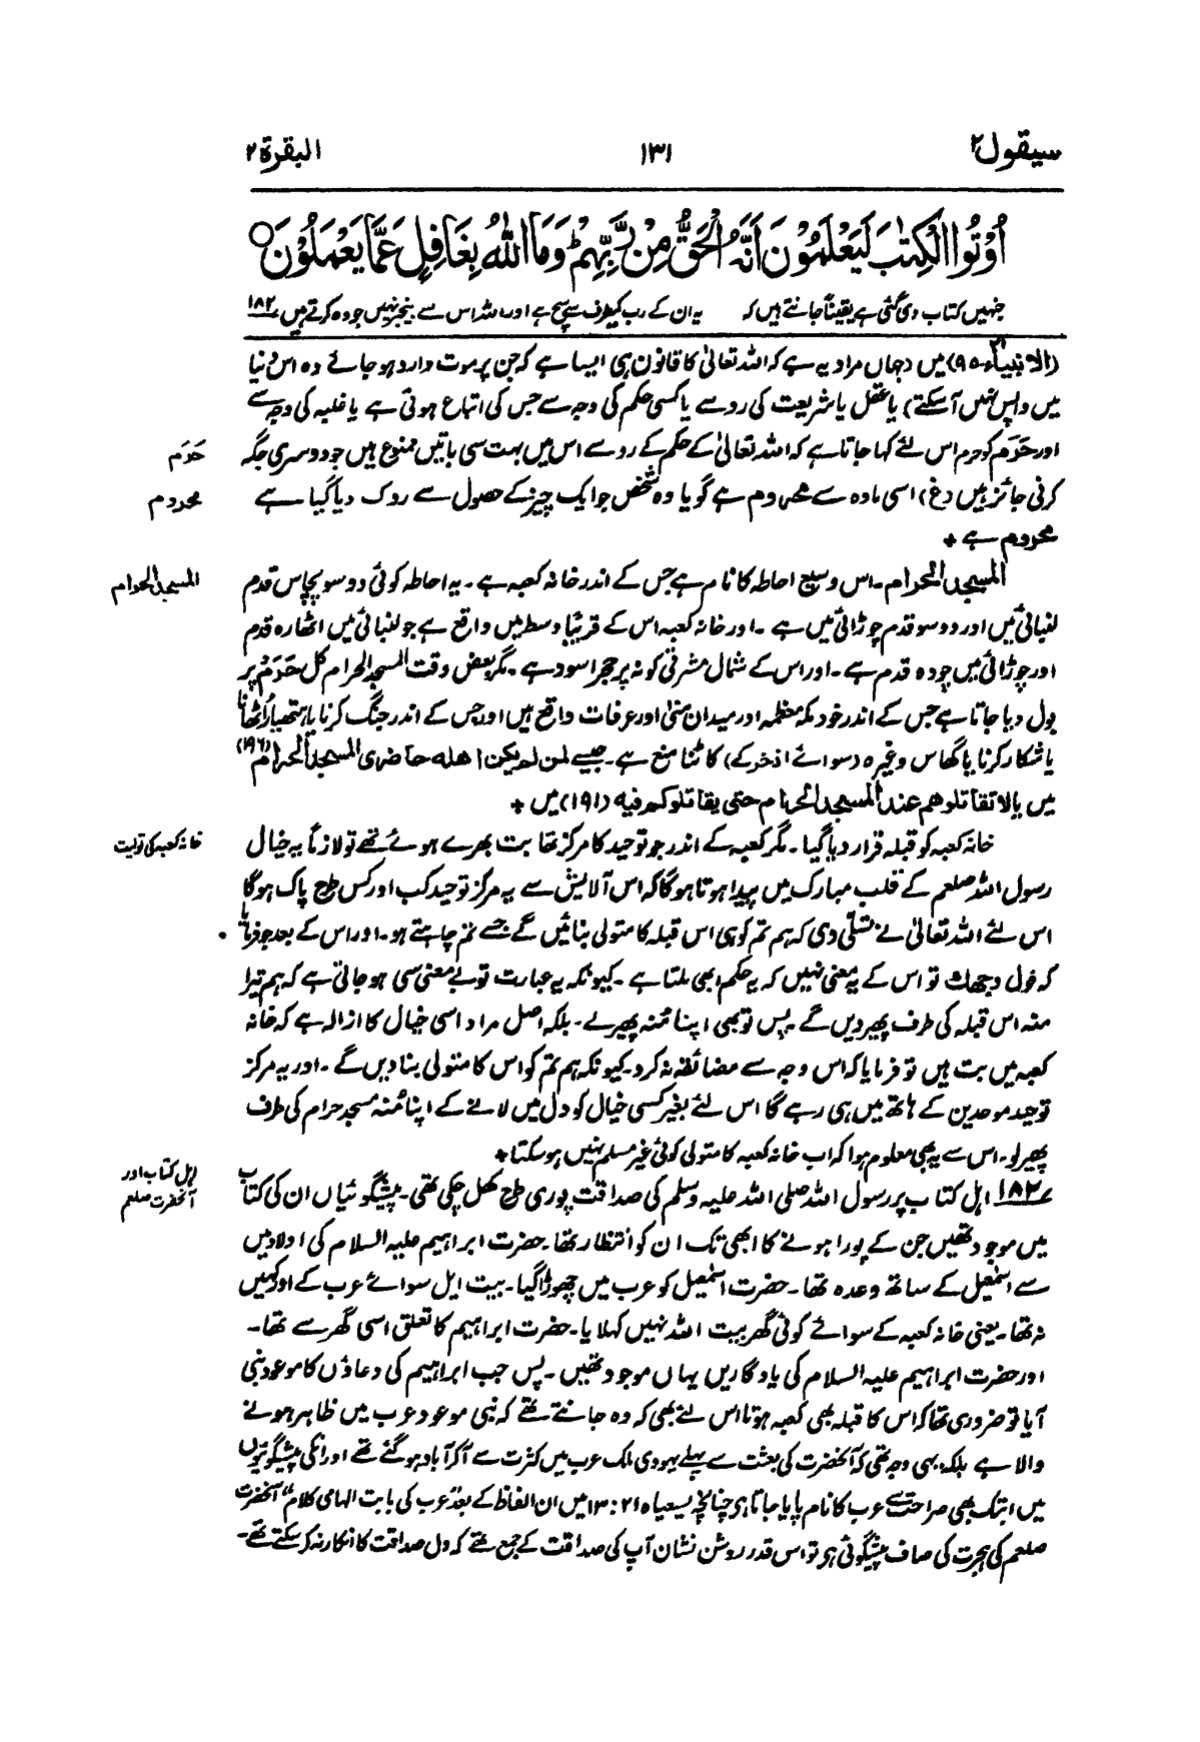 سیقول ۲ ۱۳۱ البقرة ۲
اُوْتُوا الْكِتٰبَ لَيَعْلَمُوْنَ اَنَّهُ الْحَقُّ مِنْ رَّبِّهِمْ ؕ وَمَا اللّٰهُ بِغَافِلٍ عَمَّا يَعْمَلُوْنَ ○
جنہیں کتاب دی گئی ہے یقیناً جانتے ہیں کہ یہ ان کے رب کیطرف سے سچ ہے اور اللہ اس سے بیخبر نہیں جو وہ کرتے ہیں ۱۸۲
(الانبیآء ۹۵) میں (جہاں مراد یہ ہے کہ اللہ تعالیٰ کا قانون ہی ایسا ہے کہ جن پر موت وارد ہو جائے وہ اس دنیا
میں واپس نہیں آسکتے) یا عقل یا شریعت کی رو سے یا کسی حکم کی وجہ سے جس کی اتباع ہوتی ہے یا غلبہ کی وجہ سے
اور حَرَم کو حرم اس لئے کہا جاتا ہے کہ اللہ تعالیٰ کے حکم کے رو سے اس میں بہت سی باتیں ممنوع ہیں جو دوسری جگہ
حَرَم
کرنی جائز ہیں (غ) اسی مادہ سے محروم ہے گویا وہ شخص جو ایک چیز کے حصول سے روک دیا گیا ہے
محروم
محروم ہے +
المسجد الحرام ۔ اس وسیع احاطہ کا نام ہے جس کے اندر خانہ کعبہ ہے ۔ یہ احاطہ کوئی دو سو پچاس قدم
المسجد الحرام
لنبائی میں اور دو سو قدم چوڑائی میں ہے ۔ اور خانہ کعبہ اس کے قریباً وسط میں واقع ہے جو لنبائی میں اٹھارہ قدم
اور چوڑائی میں چودہ قدم ہے ۔ اور اس کے شمال مشرقی کونہ پر حجر اسود ہے ۔ مگر بعض وقت المسجد الحرام کل حَرَم پر
بول دیا جاتا ہے جس کے اندر خود مکہ معظمہ اور میدان منیٰ اور عرفات واقع ہیں اور جس کے اندر جنگ کرنا یا ہتھیار اُٹھانا
یا شکار کرنا یا گھاس وغیرہ (سوائے اذخر کے) کاٹنا منع ہے ۔ جیسے لمن لم یکن اھلہ حاضری المسجد الحرام (۱۹۶)
میں یا لا تقاتلوھم عند المسجد الحرام حتی یقاتلوکم فیہ (۱۹۱) میں +
خانہ کعبہ کو قبلہ قرار دیا گیا ۔ مگر کعبہ کے اندر جو توحید کا مرکز تھا بت بھرے ہوئے تھے تو لازماً یہ خیال
خانہ کعبہ کی تولیت
رسول اللہ صلعم کے قلب مبارک میں پیدا ہوتا ہوگا کہ اس آلایش سے یہ مرکز توحید کب اور کس طرح پاک ہوگا
اس لئے اللہ تعالیٰ نے تسلی دی کہ ہم تم کو ہی اس قبلہ کا متولی بنائیں گے جسے تم چاہتے ہو ۔ اور اس کے بعد جو فرمایا
کہ فول وجھک تو اس کے یہ معنی نہیں کہ یہ حکم ابھی ملتا ہے ۔ کیونکہ یہ عبارت تو بے معنی سی ہو جاتی ہے کہ ہم تیرا
منہ اس قبلہ کی طرف پھیر دیں گے پس تو بھی اپنا مُنہ پھیرلے ۔ بلکہ اصل مراد اسی خیال کا ازالہ ہے کہ خانہ
کعبہ میں بت ہیں تو فرمایا کہ اس وجہ سے مضائقہ نہ کرو ۔ کیونکہ ہم تم کو اس کا متولی بنا دیں گے ۔ اور یہ مرکز
توحید موحدین کے ہاتھ میں ہی رہے گا اس لئے بغیر کسی خیال کو دل میں لانے کے اپنا مُنہ مسجد حرام کی طرف
پھیرلو ۔ اس سے یہ بھی معلوم ہوا کہ اب خانہ کعبہ کا متولی کوئی غیر مسلم نہیں ہو سکتا +
۱۸۲ اہل کتاب پر رسول اللہ صلی اللہ علیہ وسلم کی صداقت پوری طرح کھل چکی تھی ۔ پیشگوئیاں ان کی کتاب
اہل کتاب اور
آنحضرت صلعم
میں موجود تھیں جن کے پورا ہونے کا ابھی تک ان کو انتظار تھا ۔ حضرت ابراہیم علیہ السلام کی اولاد میں
سے اسمٰعیل کے ساتھ وعدہ تھا ۔ حضرت اسمٰعیل کو عرب میں چھوڑا گیا ۔ بیت ایل سوائے عرب کے اور کہیں
نہ تھا ۔ یعنی خانہ کعبہ کے سوائے کوئی گھر بیت اللہ نہیں کہلایا ۔ حضرت ابراہیم کا تعلق اسی گھر سے تھا ۔
اور حضرت ابراہیم علیہ السلام کی یادگاریں یہاں موجود تھیں ۔ پس جب ابراہیم کی دعاؤں کا موعود نبی
آیا تو ضروری تھا کہ اس کا قبلہ بھی کعبہ ہوتا اس لئے بھی کہ وہ جانتے تھے کہ نبی موعود عرب میں ظاہر ہونے
والا ہے بلکہ یہی وجہ تھی کہ آنحضرت کی بعثت سے پہلے یہودی ملک عرب میں کثرت سے آکر آباد ہو گئے تھے اور انکی پیشگوئیوں
میں ابتک بھی صراحت سے عرب کا نام پایا جاتا ہی چنانچہ یسعیاہ ۲۱ : ۱۳ میں ان الفاظ کے بعد "عرب کی بابت الہامی کلام" آنحضرت
صلعم کی ہجرت کی صاف پیشگوئی ہی تو اس قدر روشن نشان آپ کی صداقت کے جمع تھے کہ دل صداقت کا انکار نہ کر سکتے تھے ۔